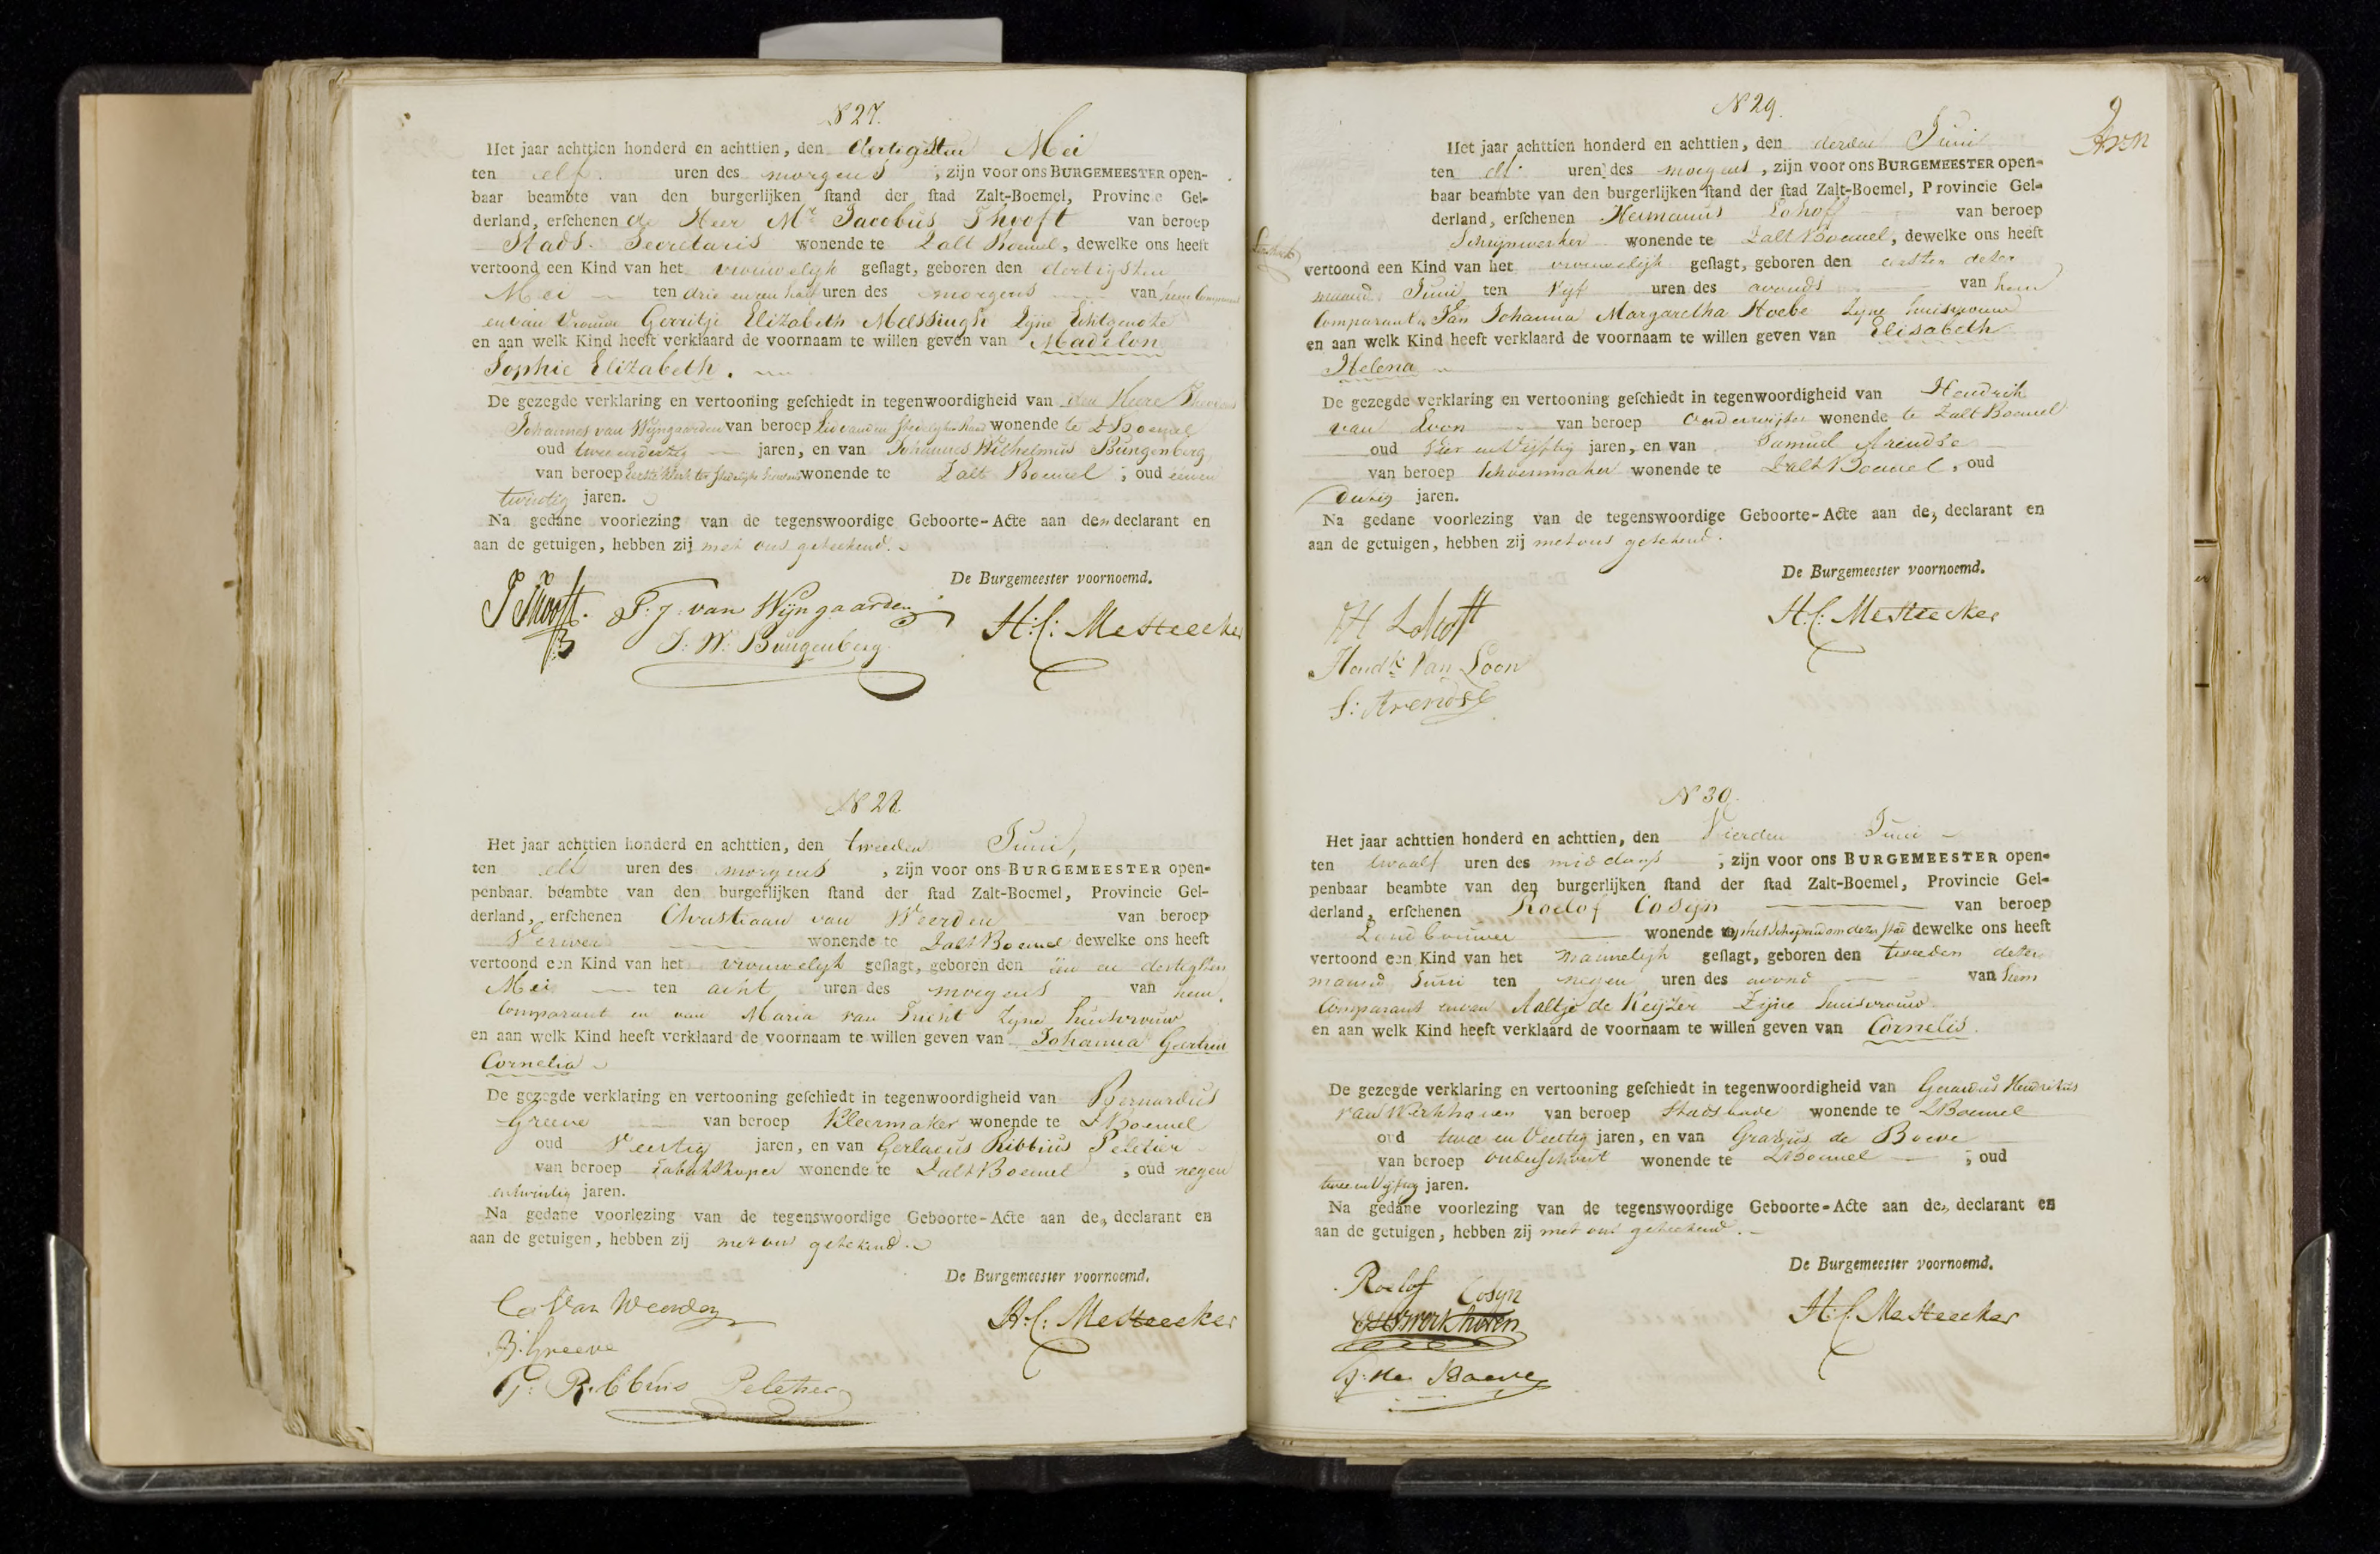 N 27.
Het jaar achttien honderd en achttien, den dertigsten Mei
ten elf uren des morgens, zijn voor ons BURGEMEESTER open-
baar beambte van den burgerlijken stand der stad Zalt-Boemel, Provincie Gel-
derland, erschenen de Heer Mr Jacobus Thooft van beroep
Stads Secretaris wonende te Zalt Boemel, dewelke ons heeft
vertoond een Kind van het vrouwelijk geslagt, geboren den dertigsten
Mei ten drie en een half uren des morgens van hem Comparant
en van Vrouwe Gerritje Elizabeth Messingh Zijne Echtgenote
en aan welk Kind heeft verklaard de voornaam te willen geven van Madelon
Sophie Elizabeth.
De gezegde verklaring en vertooning geschiedt in tegenwoordigheid van den Heere
Johannes van Wijngaarden van beroep Lid van den Stedelijken Raad wonende te Z Boemel
oud twee en dertig jaren, en van Johannes Wilhelmus Bungenberg
van beroep Eerste Klerk ter Stedelijke wonende te Zalt Boemel, oud een en
twintig jaren.
Na gedane voorlezing van de tegenswoordige Geboorte-Acte aan den declarant en
aan de getuigen, hebben zij met ons geteekend.
De Burgemeester voornoemd.
J Thooft. T: J: van Wijngaarden
J: W: Bungenberg
H: C: Mesteecker
N 28
Het jaar achttien honderd en achttien, den tweeden Junij,
ten elf uren des morgens, zijn voor ons BURGEMEESTER open-
penbaar beambte van den burgerlijken stand der stad Zalt-Boemel, Provincie Gel-
derland, erschenen Christiaan van Weerden van beroep
Verwer wonende te Zalt Boemel dewelke ons heeft
vertoond een Kind van het vrouwelijk geslagt, geboren den een en dertigsten
Mei ten acht uren des morgens van hem
Comparant en van Maria van Trient Zijne huisvrouw
en aan welk Kind heeft verklaard de voornaam te willen geven van Johanna
Cornelia
De gezegde verklaring en vertooning geschiedt in tegenwoordigheid van Bernardus
Greeve van beroep Kleermaker wonende te Z Boemel
oud Veertig jaren, en van Gerlacus Ribbius Peletier
van beroep tabakskoper wonende te Zalt Boemel, oud negen
en twintig jaren.
Na gedane voorlezing van de tegenswoordige Geboorte-Acte aan den declarant en
aan de getuigen, hebben zij met ons getekend.
De Burgemeester voornoemd.
C Van Weerden
B: Greeve
G: Ribbius Peletier
H: C: Mesteecker
N 29.
Het jaar achttien honderd en achttien, den derden Junij
ten elf uren des morgens, zijn voor ons BURGEMEESTER open-
baar beambte van den burgerlijken stand der stad Zalt-Boemel, Provincie Gel-
derland, erschenen Hermanus Lohoff van beroep
Schrijnwerker wonende te Zalt Boemel, dewelke ons heeft
vertoond een Kind van het vrouwelijk geslagt, geboren den eersten dezer
maand Junij ten Vijf uren des avonds van hem
Comparant en Van Johanna Margaretha Hoebe Zijne huisvrouw
en aan welk Kind heeft verklaard de voornaam te willen geven van Elisabeth
Helena
De gezegde verklaring en vertooning geschiedt in tegenwoordigheid van Hendrik
van Loon van beroep Onderwijzer wonende te Zalt Boemel
oud Vier en Vijftig jaren, en van Samuel Arendse
van beroep Schoenmaker wonende te Zalt Boemel, oud
Dertig jaren.
Na gedane voorlezing van de tegenswoordige Geboorte-Acte aan den declarant en
aan de getuigen, hebben zij met ons getekend.
De Burgemeester voornoemd.
H Lohoff
Hendk Van Loon
S: Arendse
H: C: Mesteecker
N 30.
Het jaar achttien honderd en achttien, den Vierden Junij
ten twaalf uren des middags, zijn voor ons BURGEMEESTER open-
penbaar beambte van den burgerlijken stand der stad Zalt-Boemel, Provincie Gel-
derland, erschenen Roelof Cosijn van beroep
Landbouwer wonende op het Schependom dezer stad dewelke ons heeft
vertoond een Kind van het mannelijk geslagt, geboren den tweeden dezer
maand Junij ten negen uren des avond van hem
Comparant en van Aaltje de Keijzer Zijne huisvrouw
en aan welk Kind heeft verklaard de voornaam te willen geven van Cornelis.
De gezegde verklaring en vertooning geschiedt in tegenwoordigheid van Gerardus Hendrikus
van Werkhoven van beroep Stadsbode wonende te Z Boemel
oud twee en Veertig jaren, en van Gradus de Boeve
van beroep onderschout wonende te Z Boemel, oud
twee en Vijftig jaren.
Na gedane voorlezing van de tegenswoordige Geboorte-Acte aan den declarant en
aan de getuigen, hebben zij met ons geteekend.
De Burgemeester voornoemd.
Roelof Cosyn
G. de Boeve
H: C: Mesteecker